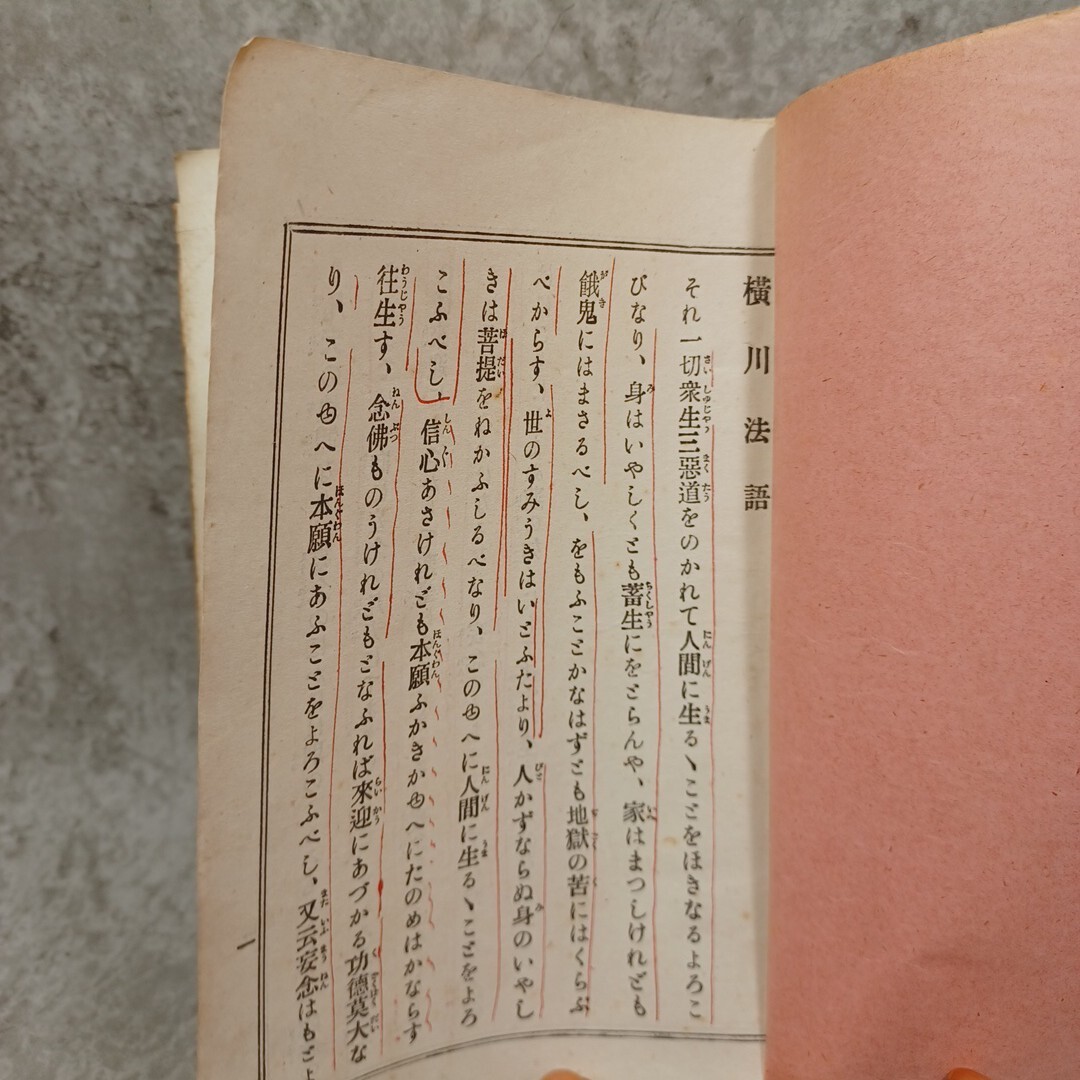 横川法語
それ一切衆生三惡道をのかれて人間に生るゝことをほきなるよろこ
びなり、身はいやしくとも蓄生にをとらんや、家はまつしけれども
餓鬼にはまさるべし、をもふことかなはずとも地獄の苦にはくらぶ
べからす、世のすみうきはいとふたより、人かずならぬ身のいやし
きは菩提をねかふしるべなり、このゆへに人間に生るゝことをよろ
こふべし、信心あさけれども本願ふかきかゆへにたのめはかならす
往生す、念佛ものうけれどもとなふれば來迎にあづかる功德莫大な
り、このゆへに本願にあふことをよろこふべし、又云妄念はもとよ
一